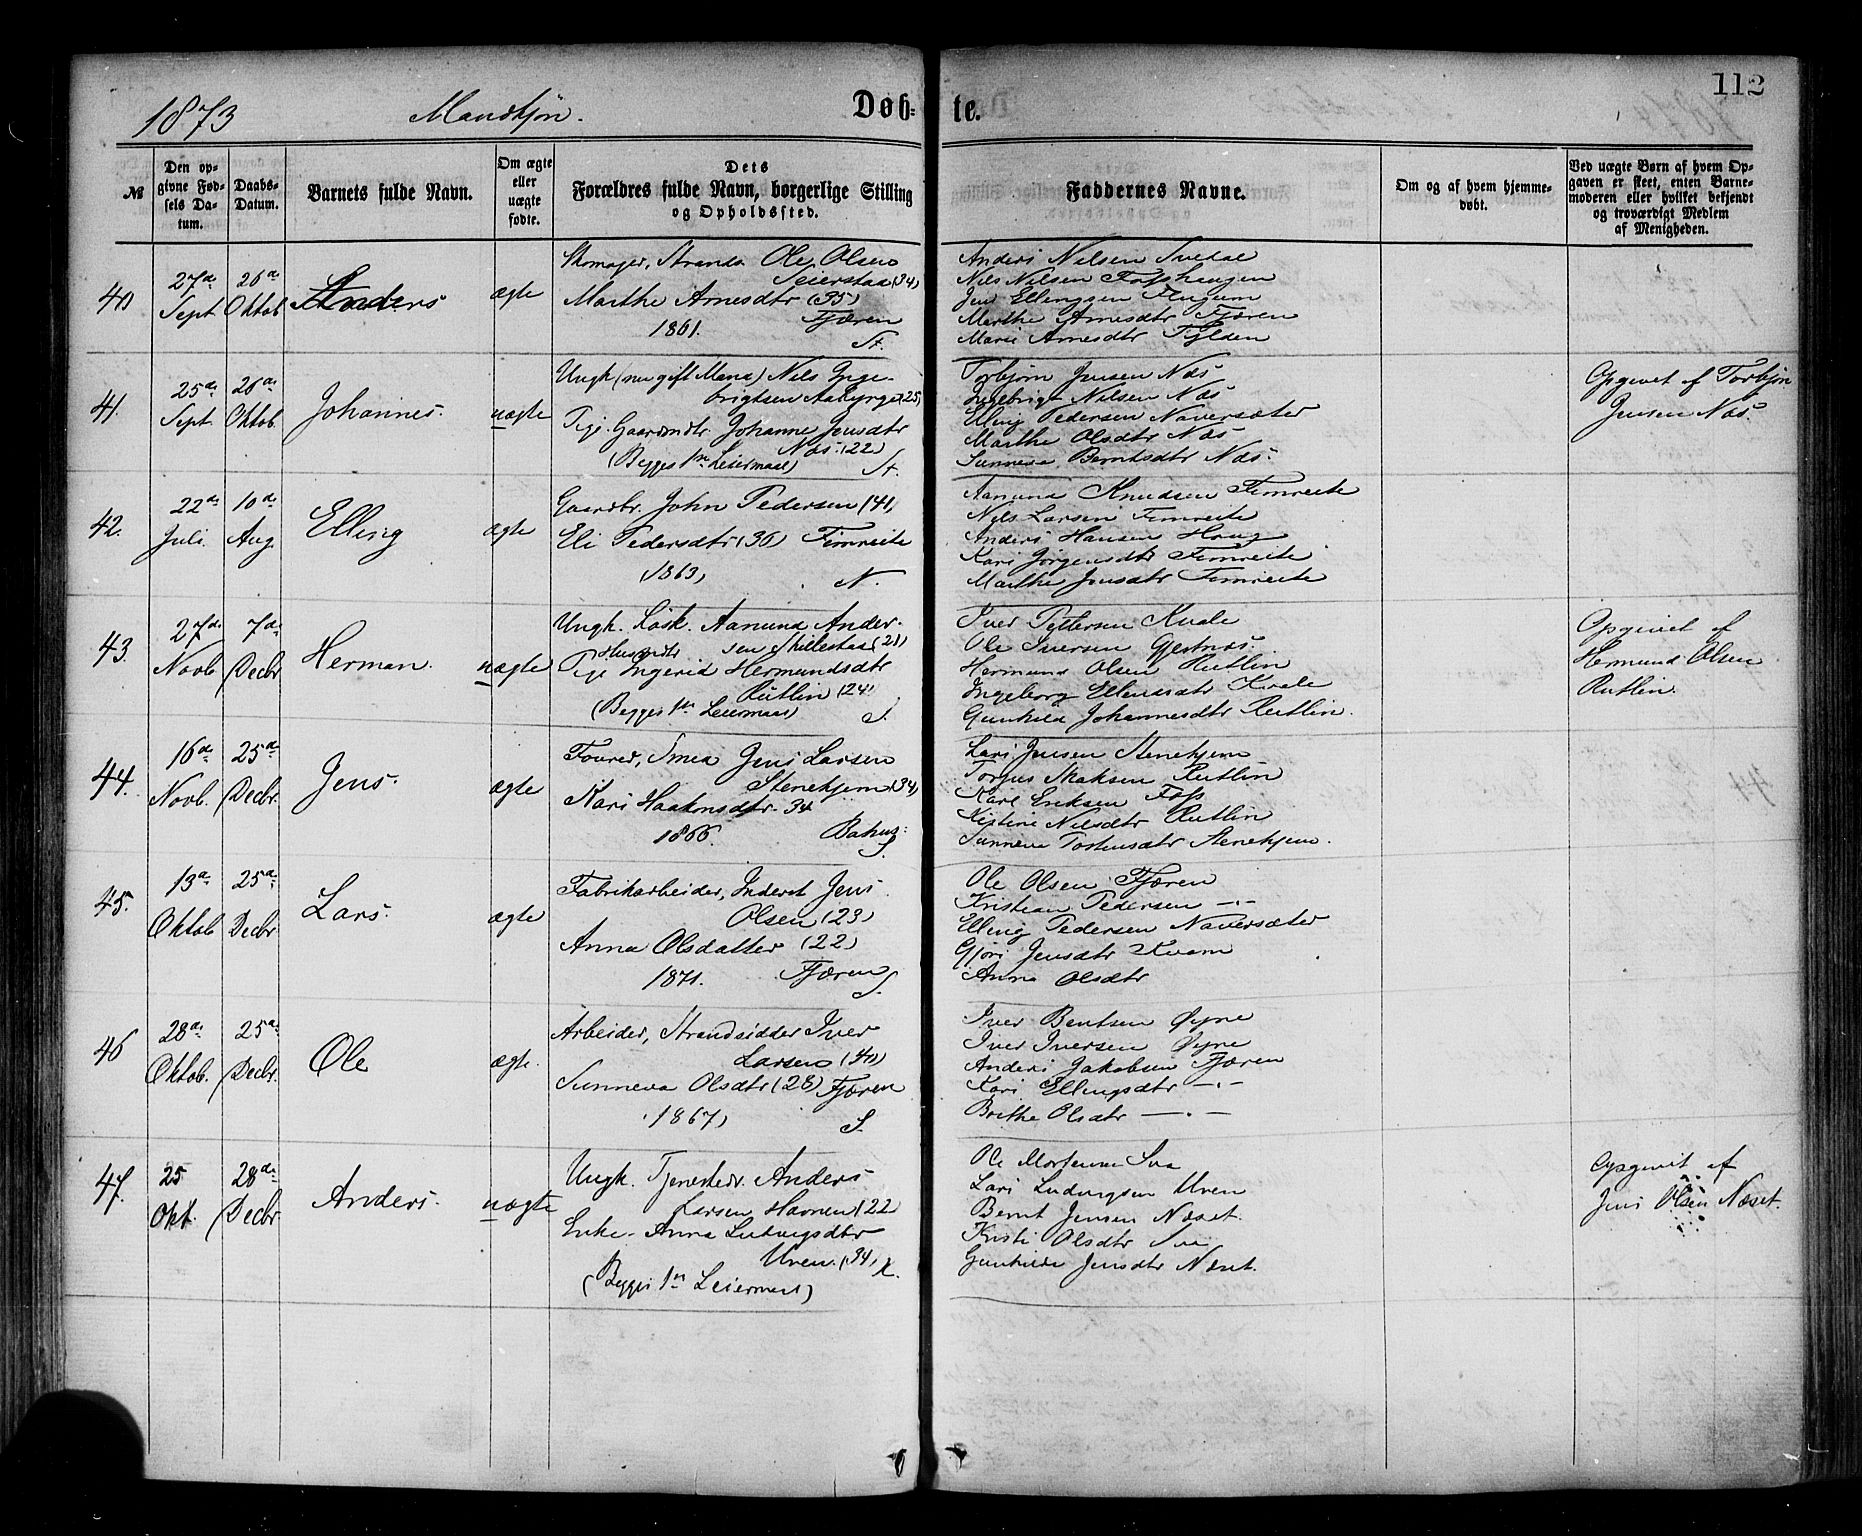 112
1873 Mandkjøn. Døb- te.
№
Den opgivne Fødsels Datum.
Daabs-Datum.
Barnets fulde Navn.
Om ægte eller uægte fødte.
Dets Forældres fulde Navn, borgerlige Stilling og Opholdssted.
Faddernes Navne.
Om og af hvem hjemmedøbt.
Ved uægte Børn af hvem Opgaven er skeet, enten Barnemoderen eller hvilket bekjendt og troværdigt Medlem af Menigheden.
40 27de Sept 26de Oktob Anders ægte
Skomager, Strands. Ole Olsen
Seierstad (34)
Marthe Arnesdtr (35)
1861. Fjæren
St.
Anders Nielsen Svedal
Nils Nilsen Fosshaugen
Jens Ellingsen Flugum
Marthe Arnesdtr Fjæren
Marie Arnesdtr Fylden
41. 25de Sept 26de Oktob. Johannes. uægte
Ungk (nu gift Mand) Nils Inge-
brigtsen Aabyrge (25)
Pige. Gaardmdtr. Johanne Jensdtr
Næs. (22)
(Begges 1ste Leiermaal) St.
Torbjørn Jensen Næs
Ingebrigt Nilsen Næs
Elling Pedersen Naversæter
Marthe Olsdtr Næs
Sunneva Berntsdtr Næs.
Opgivet af Torbjøn
Jensen Næs.
42. 22de Juli. 10de Aug. Elling ægte
Gaardbr. John Pedersen (41)
Eli Pedersdtr (36) Fimreite
(1863) N.
Aamund Knudsen Fimreite
Nils Larsen Fimreite
Anders Hansen Houg
Kari Jørgensdtr Fimreite
Marthe Jensdtr Fimreite
43. 27de Novb 7de Decbr Herman. uægte
Ungk. Løsk. Aamund Ander-
sen Skillestad (21)
Husmdtr
Pige Ingerid Hermundsdtr
Rutlin (24)
(Begges 1ste Leiermaal) S.
Iver Pettersen Kvale
Ole Iversen Gjestnæs.
Hermund Olsen Rutlin
Ingeborg Ellendsdtr Kvale
Gunhild Johannesdtr Rutlin.
Opgivet af
Hermund Olsen
Rutlin.
44. 16de Novb. 25de Decbr. Jens. ægte
Smed Jens Larsen
Stenehjem (34)
Kari Haakonsdtr. 34
1866. S.
Lars Jensen Stenehjem
Torjus Isaksen Rutlin
Karl Eriksen Foss
Kistine Nilsdtr Rutlin
Sunneva Torstensdtr Stenehjem.
45. 13de Oktob 25de Decbr Lars. ægte
Fabrikarbeider, Inderst Jens
Olsen (23)
Anna Olsdatter (22)
1871. Fjæren S.
Ole Olsen Fjæren
Kristian Pedersen —"—
Elling Pedersen Naversæter
Gjøri Jensdtr Kvam
Anna Olsdtr
46 28de Oktob. 25de Decbr. Ole ægte.
Arbeider, Strandsidder Iver
Larsen (40)
Sunneva Olsdtr (28) Fjæren
(1867) S.
Iver Bentsen Øyne
Iver Iversen Øyne
Anders Jakobsen Fjæren
Kari Ellingsdtr —"—
Brithe Olsdtr —"—
47. 25 Okt. 28de Decbr Anders. uægte
Ungk. Tjenestedr. Anders
Larsen Havnen (22)
Enke. Anna Ludvigsdtr
Uren. (34)
(Begges 1ste Leiermaal)
Ole Mortensen Sva
Lars Ludvigsen Uren
Bernt Jensen Næset.
Kristi Olsdtr Sva
Gunhilde Jensdtr Næset.
Opgivet af
Jens Olsen Næset.